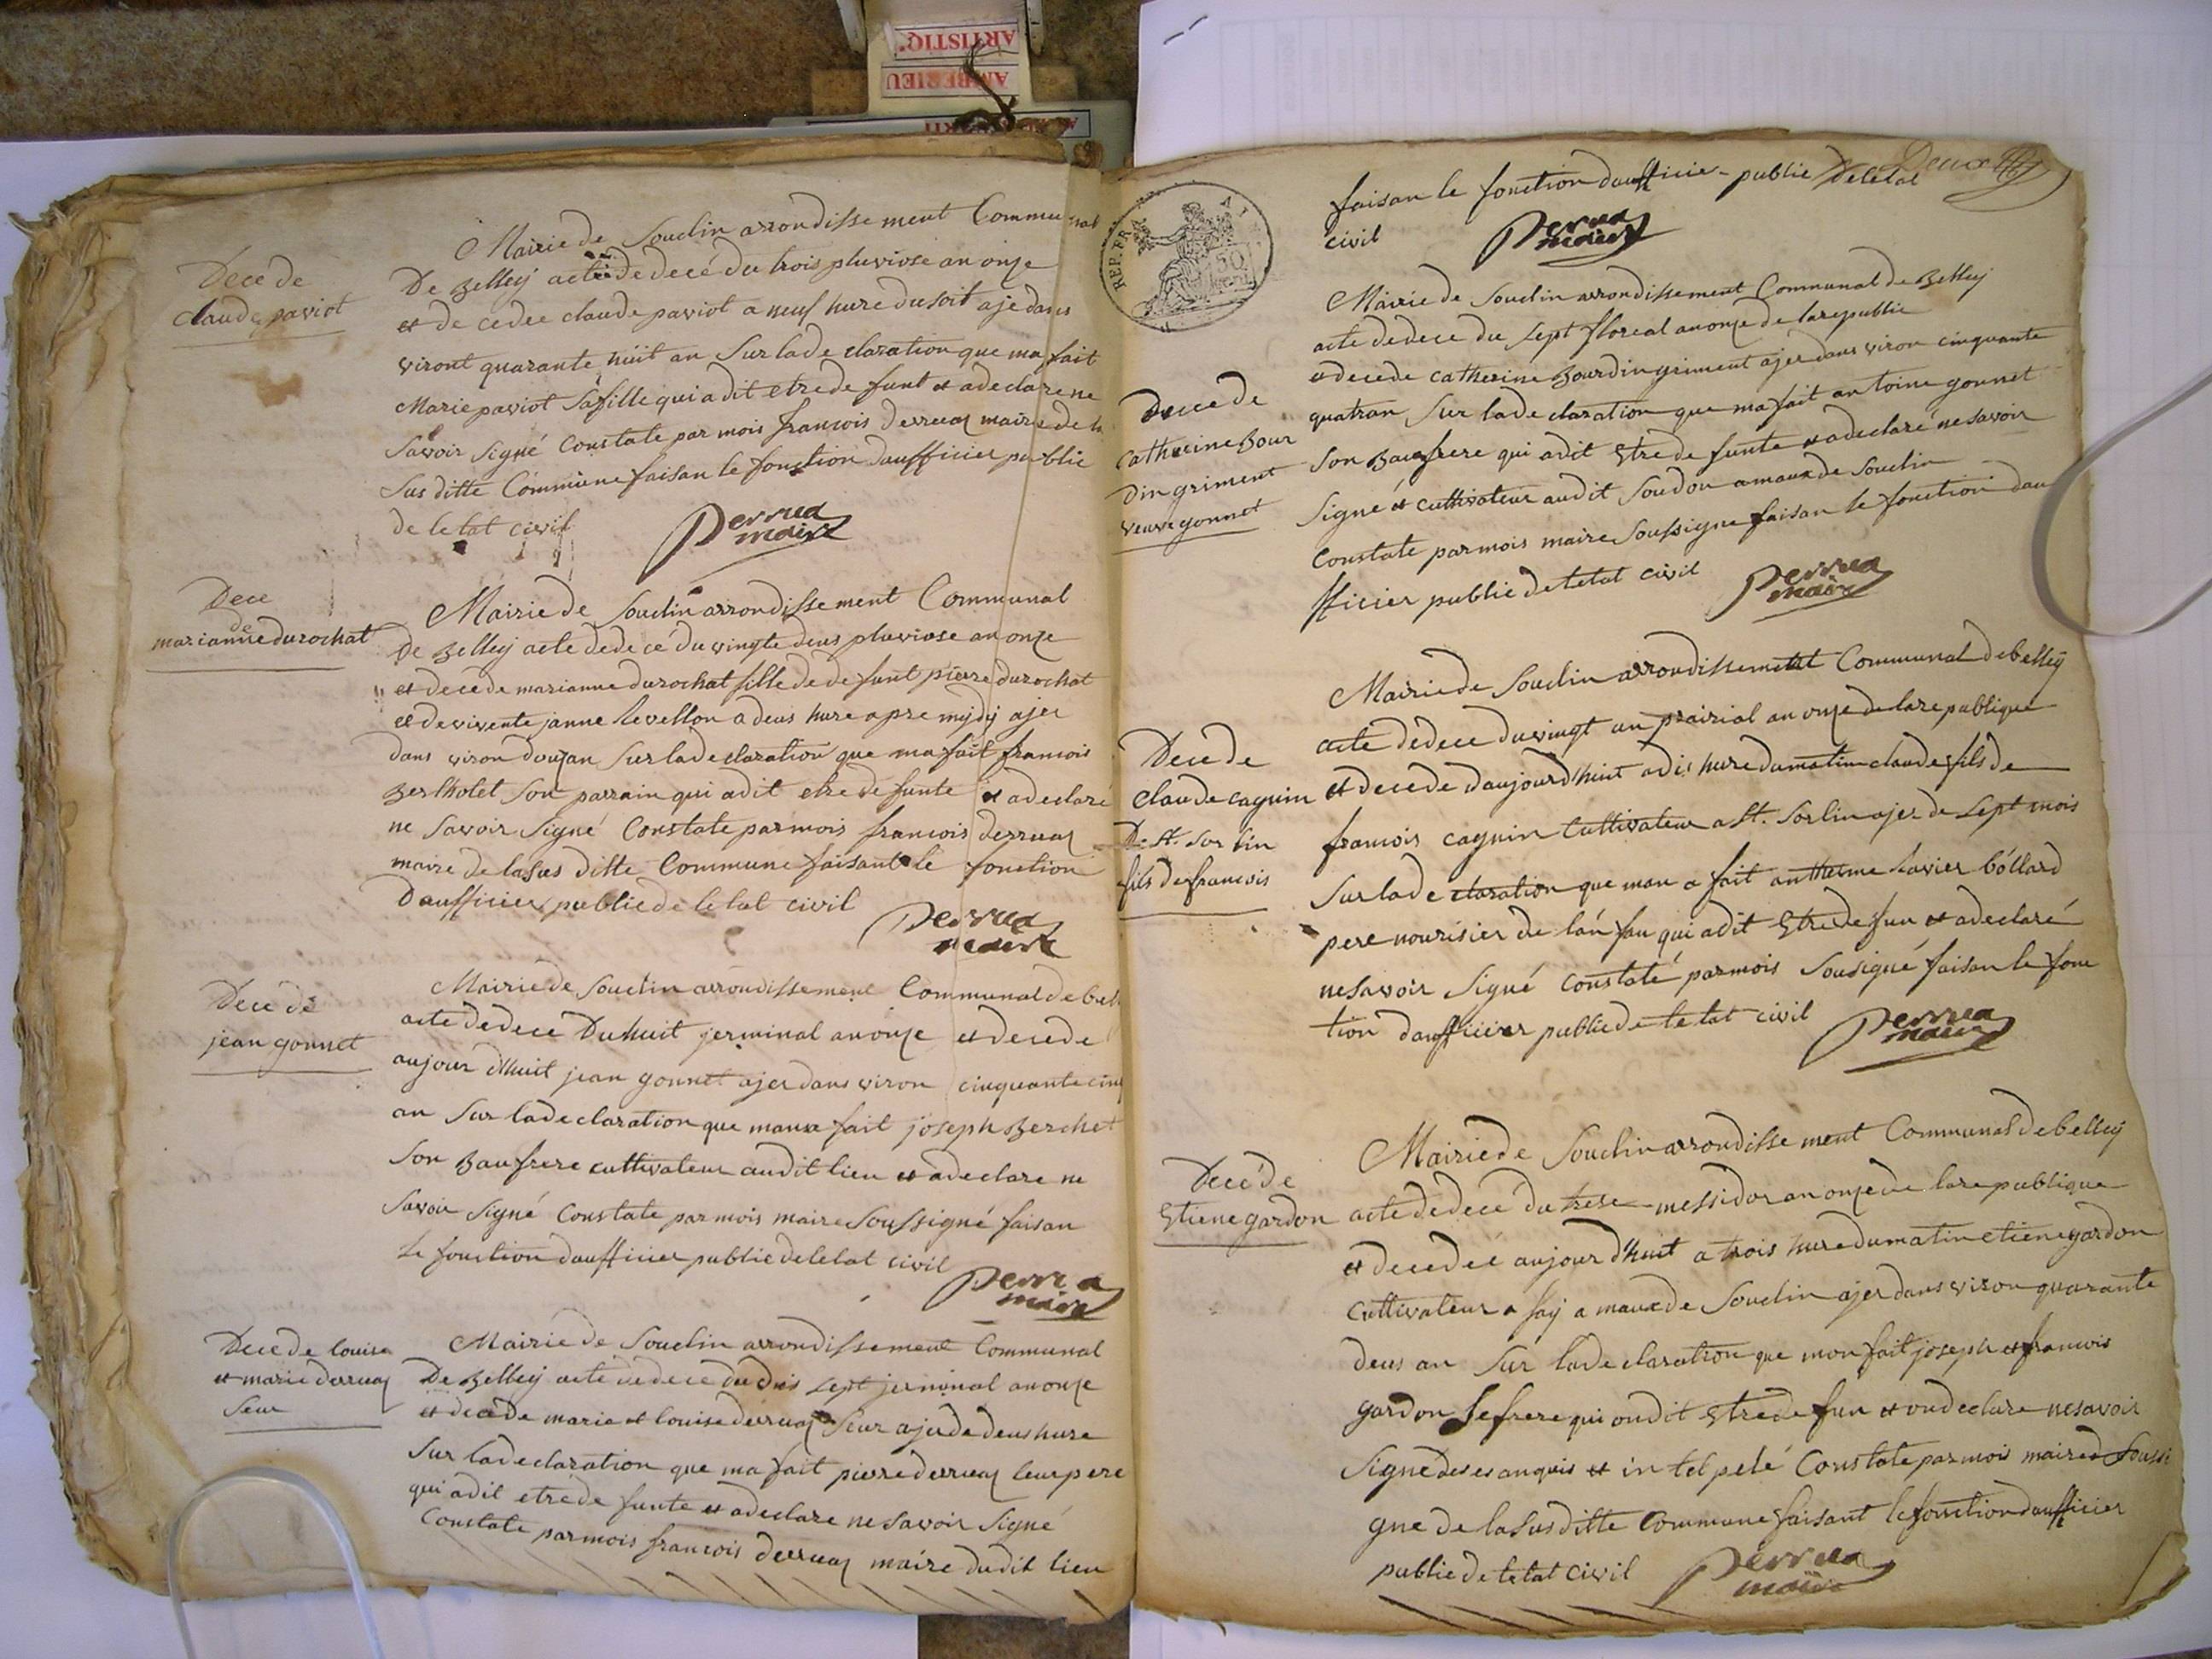 ARTISTIQ'
AMBERIEU
Dece de
claude paviot
Mairie de Souclin arrondissement Communal
De Belleij acte de decé du trois pluviose an onze
et de cedee claude paviot a neuf hure du soit aje dans
viront quarante huit an Sur la de claration que ma fait
Marie paviot Sa fille qui a dit etre de funt et a declare ne
Savoir Signé Constate par mois francois derruaz maire de la
Sus ditte Commune faisan le fonction daufficier public
de le tat civil
Derrua
maire
Dece
de
marianne durochat
Mairie de Souclin arrondissement Communal
De Belleij acte de de cé du vingte deus pluviose an onze
et decede marianne durochat fille de de funt pierre durochat
et de vivente janne levellon a deus hure apre mydy ajer
dans viron douzan Sur la de claration que ma fait francois
Bertholet Son parrain qui a dit etre de funte et a declaré
ne Savoir Signé Constate par mois francois derruaz
maire de la Sus ditte Commune faisant le fonction
Daufficier public de le tat civil
Derrua
maire
Decé de
jean gonnet
Mairie de Souclin arrondissement Communal de bell
acte de dece Du huit jerminal an onze et decede
aujour dhuit jean gonnet ajer dans viron cinquante cinq
an Sur la de claration que maux fait joseph Berchet
Son Baufrere cultivateur audit lieu et a declare ne
Savoir Signé Constate par mois maire Soussigné faisan
le fonction daufficier public de le tat civil
Derrua
maire
Dece de louise
et marie derruaz
Seur
Mairie de Souclin arrondissement Communal
De Belleij acte de dece du dis Sept jerminal an onze
et decede marie et louise derruaz Seur ajer de deus hure
Sur la declaration que ma fait pierre derruaz leur pere
qui a dit etre de funte et a declare ne Savoir Signé
Constate par mois francois derruaz maire dudit lieu
Deux
REP. FRA
faisan le fonction daufficier public De le tat
civil
Derrua
maire
Decce de
Catherine Bour
din griment
veuve gonnet
Mairie de Souclin arrondissement Communal de Belleij
acte de dece du Sept floreal an onze de la republic
et decede catherine Bourdin griment ajer dans viron cinquante
quatran Sur la de claration que ma fait antoine gonnet
Son Baufrere qui a dit Etre de funte et a declaré ne Savoir
Signé et cultivateur audit Soudon amaux de Souclin
Constate par mois maire Soussigne faisan le fonction dau
fficier public de le tat civil
Derrua
maire
Dece de
Claude caguin
De St. Sorlin
fils de francois
Mairie de Souclin arrondissement Communal de belleÿ
acte de dece du vingt un prairial an onze de la re publique
et decede daujourdhuit a dis hure du matin claude fils de
francois caguin Cultivateur a St. Sorlin ajer de Sept mois
Sur la de claration que mon a fait anthelme Xavier bollard
pere nourisier de lan fan qui a dit Etre de fun et a declaré
ne Savoir Signé Constaté par mois Sousigné faisan le fonc
tion daufficier public de le tat civil
Derrua
maire
Decé de
Etiene gardon
Mairie de Souclin arrondissement Communal de belleij
acte de decé du trese messidor an onze de la re publique
et decedeé aujour d'huit a trois hure du matin etiene gardon
Cultivateur a faij a maux de Souclin ajer dans viron quarante
deus an Sur la de claration que mon fait joseph et francois
gardon Se frere qui on dit Etre de fun et on declare ne savoir
Signé de ce anquis et in tel pelé Constate par mois maire Soussi
gne de la Sus ditte Commune faisant le fonction daufficier
public de le tat civil
Derrua
maire